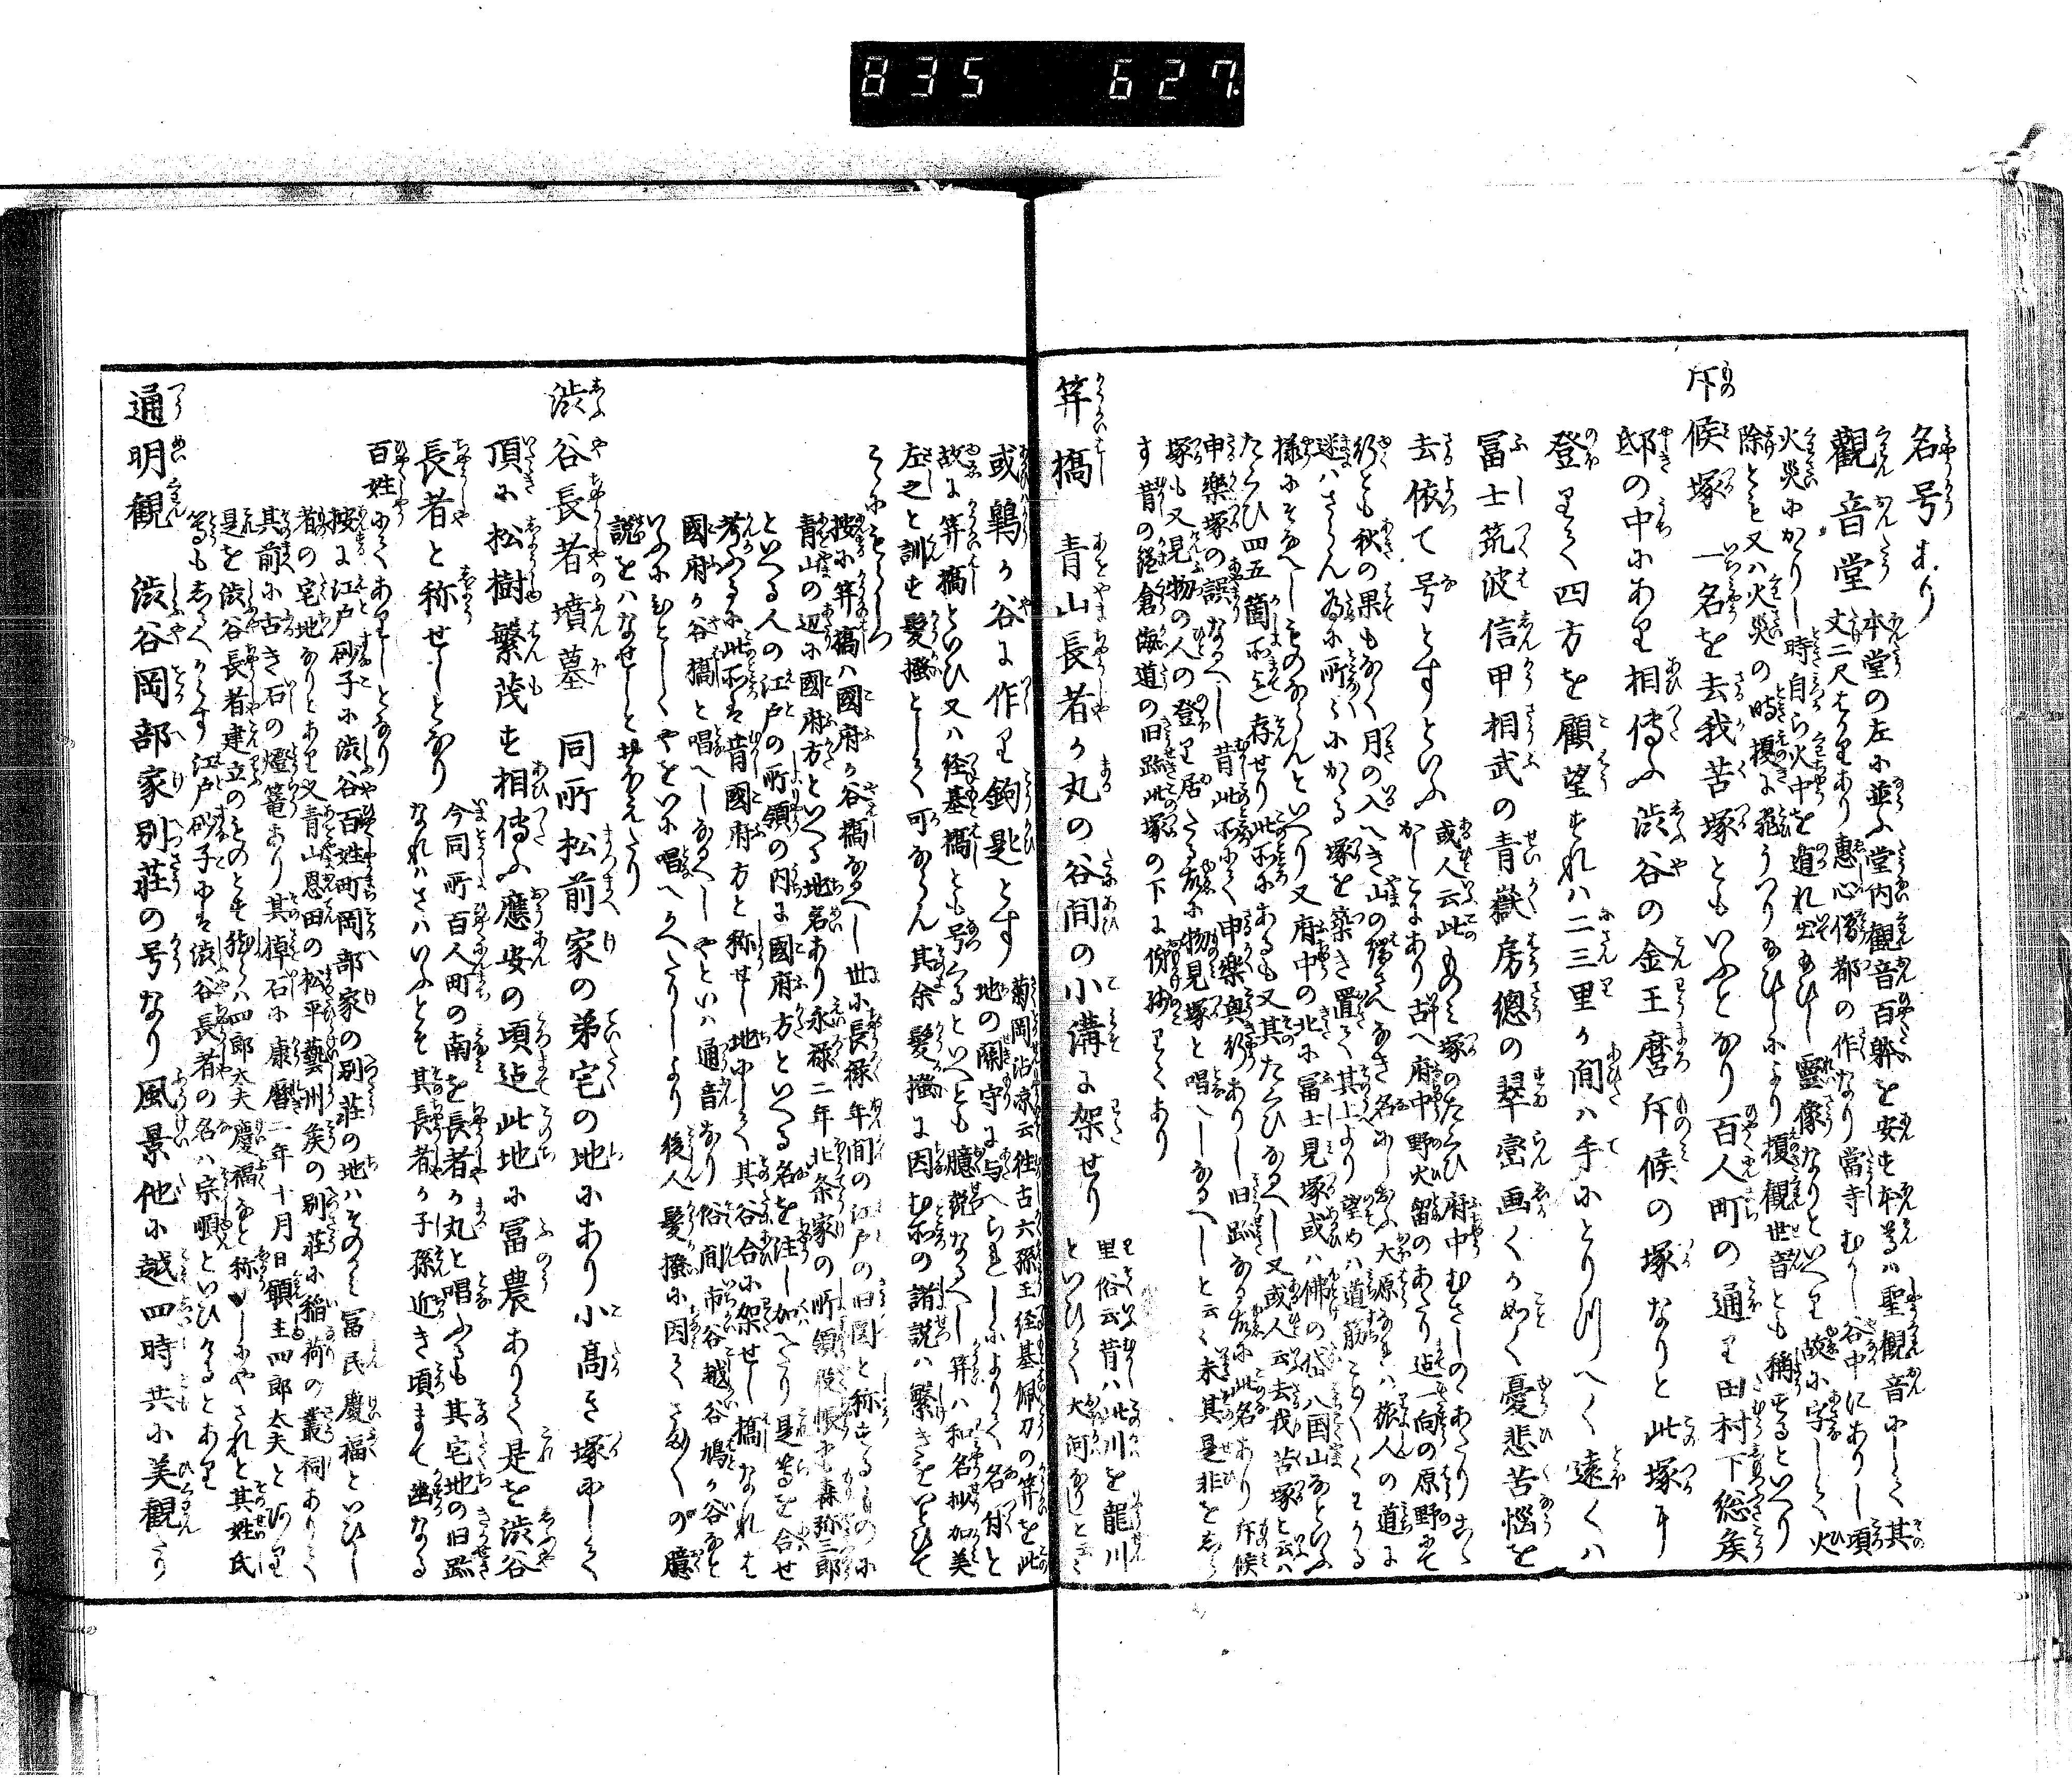 835 627
名号なり
觀音堂 本堂の左に並ふ堂内観音百躰を安す本尊ハ聖観音にして其
丈二尺はかりあり惠心僧都の作なり當寺むかし谷中にありし頃
火災にかゝりし時自ら火中を遁れ出給ひし靈像なりといへり故に字して火
除とも又ハ火災の時榎に飛うつり給ひしにより榎観世音とも稱するといへり
斥候塚 一名を去我苦塚ともいふとなり百人町の通り田村下総矦
邸の中にあり相傳ふ渋谷の金王麿斥候の塚なりと此塚に
登りて四方を顧望すれハ二三里か間ハ手にとり川へく遠くハ
冨士筑波信甲相武の青嶽房總の翠巒画くか如く憂悲苦惱を
去依て号とすといふ 或人云此ものミ塚のたくひ府中むさしのゝあたりこゝ
かしこにあり
行とも秋の果もなく月の入へき山の
迷ハさらん為に所々にかゝる塚を築き置て其上より望めハ道筋
様にそなへしものならんといへり又府中の北に冨士見塚或ハ佛の
たくひ四五箇所を存せり此所にあるも又其たくひなるへし又或人云去我苦塚と云ハ
申樂塚の誤なるへし昔此所にて申樂興行ありし旧跡なる故に此名あり斥候
塚も又見物の人の登り居たる故に物見塚と唱へしなるへしと云々未其是非をしら
す昔の鎌倉海道の旧跡此塚の下に傍
笄橋 青山長者か丸の谷間の小溝に架せり 里俗云昔ハ此川を龍川
といひて大河なりしと云々
或鶏か谷に作り鉤匙とす 菊岡沾凉云往古六孫王経基佩刀の笄を此
地の關守に与へられしによりて名付と
故に笄橋といひ又ハ経基橋とも号くるといへとも臆説なるへし笄ハ和名抄加美
左之と訓す髪掻として可ならん其余髪掻に因む所の諸説ハ繁きをいとひて
こゝにもらしつ
按に笄橋ハ國府か谷橋なるへし世に長禄年間の江戸の旧図と称するものに
青山の辺に國府方といへる地名あり永禄二年北条家の所領役帳にも森弥三郎
といへる人の江戸の所領の内に國府方といへる名を注し加へたり是等を合せ
考ふるに此所は昔國府方と称せし地にして其谷合に架せし橋なれは
國府か谷橋と唱へしなるへしやといハ通音なり俗間市谷越谷鳩か谷なと
いふにひとしくやをいに唱へかへたりしより後人髪掻に因てさま〳〵の臆
説をハなせしと
渋谷長者墳墓 同所松前家の弟宅の地にあり小高き塚にして
頂に松樹繁茂す相傳ふ應安の頃迠此地に冨農ありて是を渋谷
長者と称せしとなり 今同所百人町の南を長者か丸と唱ふるも其宅地の旧跡
なれハさハいふとそ其長者か子孫近き頃まて幽なる
百姓にてありしとなり
按に江戸砂子に渋谷百姓町岡部家の別荘の地ハそのかミ冨民慶福といひし
者の宅地なりとあり又青山恩田の松平藝州矦の別荘に稲荷の叢祠ありて
其前に古き石の燈篭あり其棹石に康暦二年十月日願主四郎太夫と
是を渋谷長者建立のものとす
等もしるへからす江戸砂子にも渋谷長者の名ハ宗順といひけるとあり
通明観 渋谷岡部家別荘の号なり風景他に越四時共に美觀たり